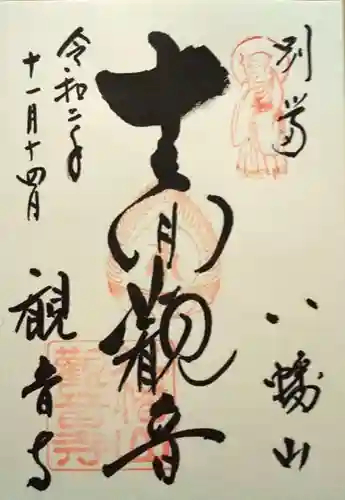 別當
八幡山
十一面觀音
令和二年
十一月十四日
観音寺